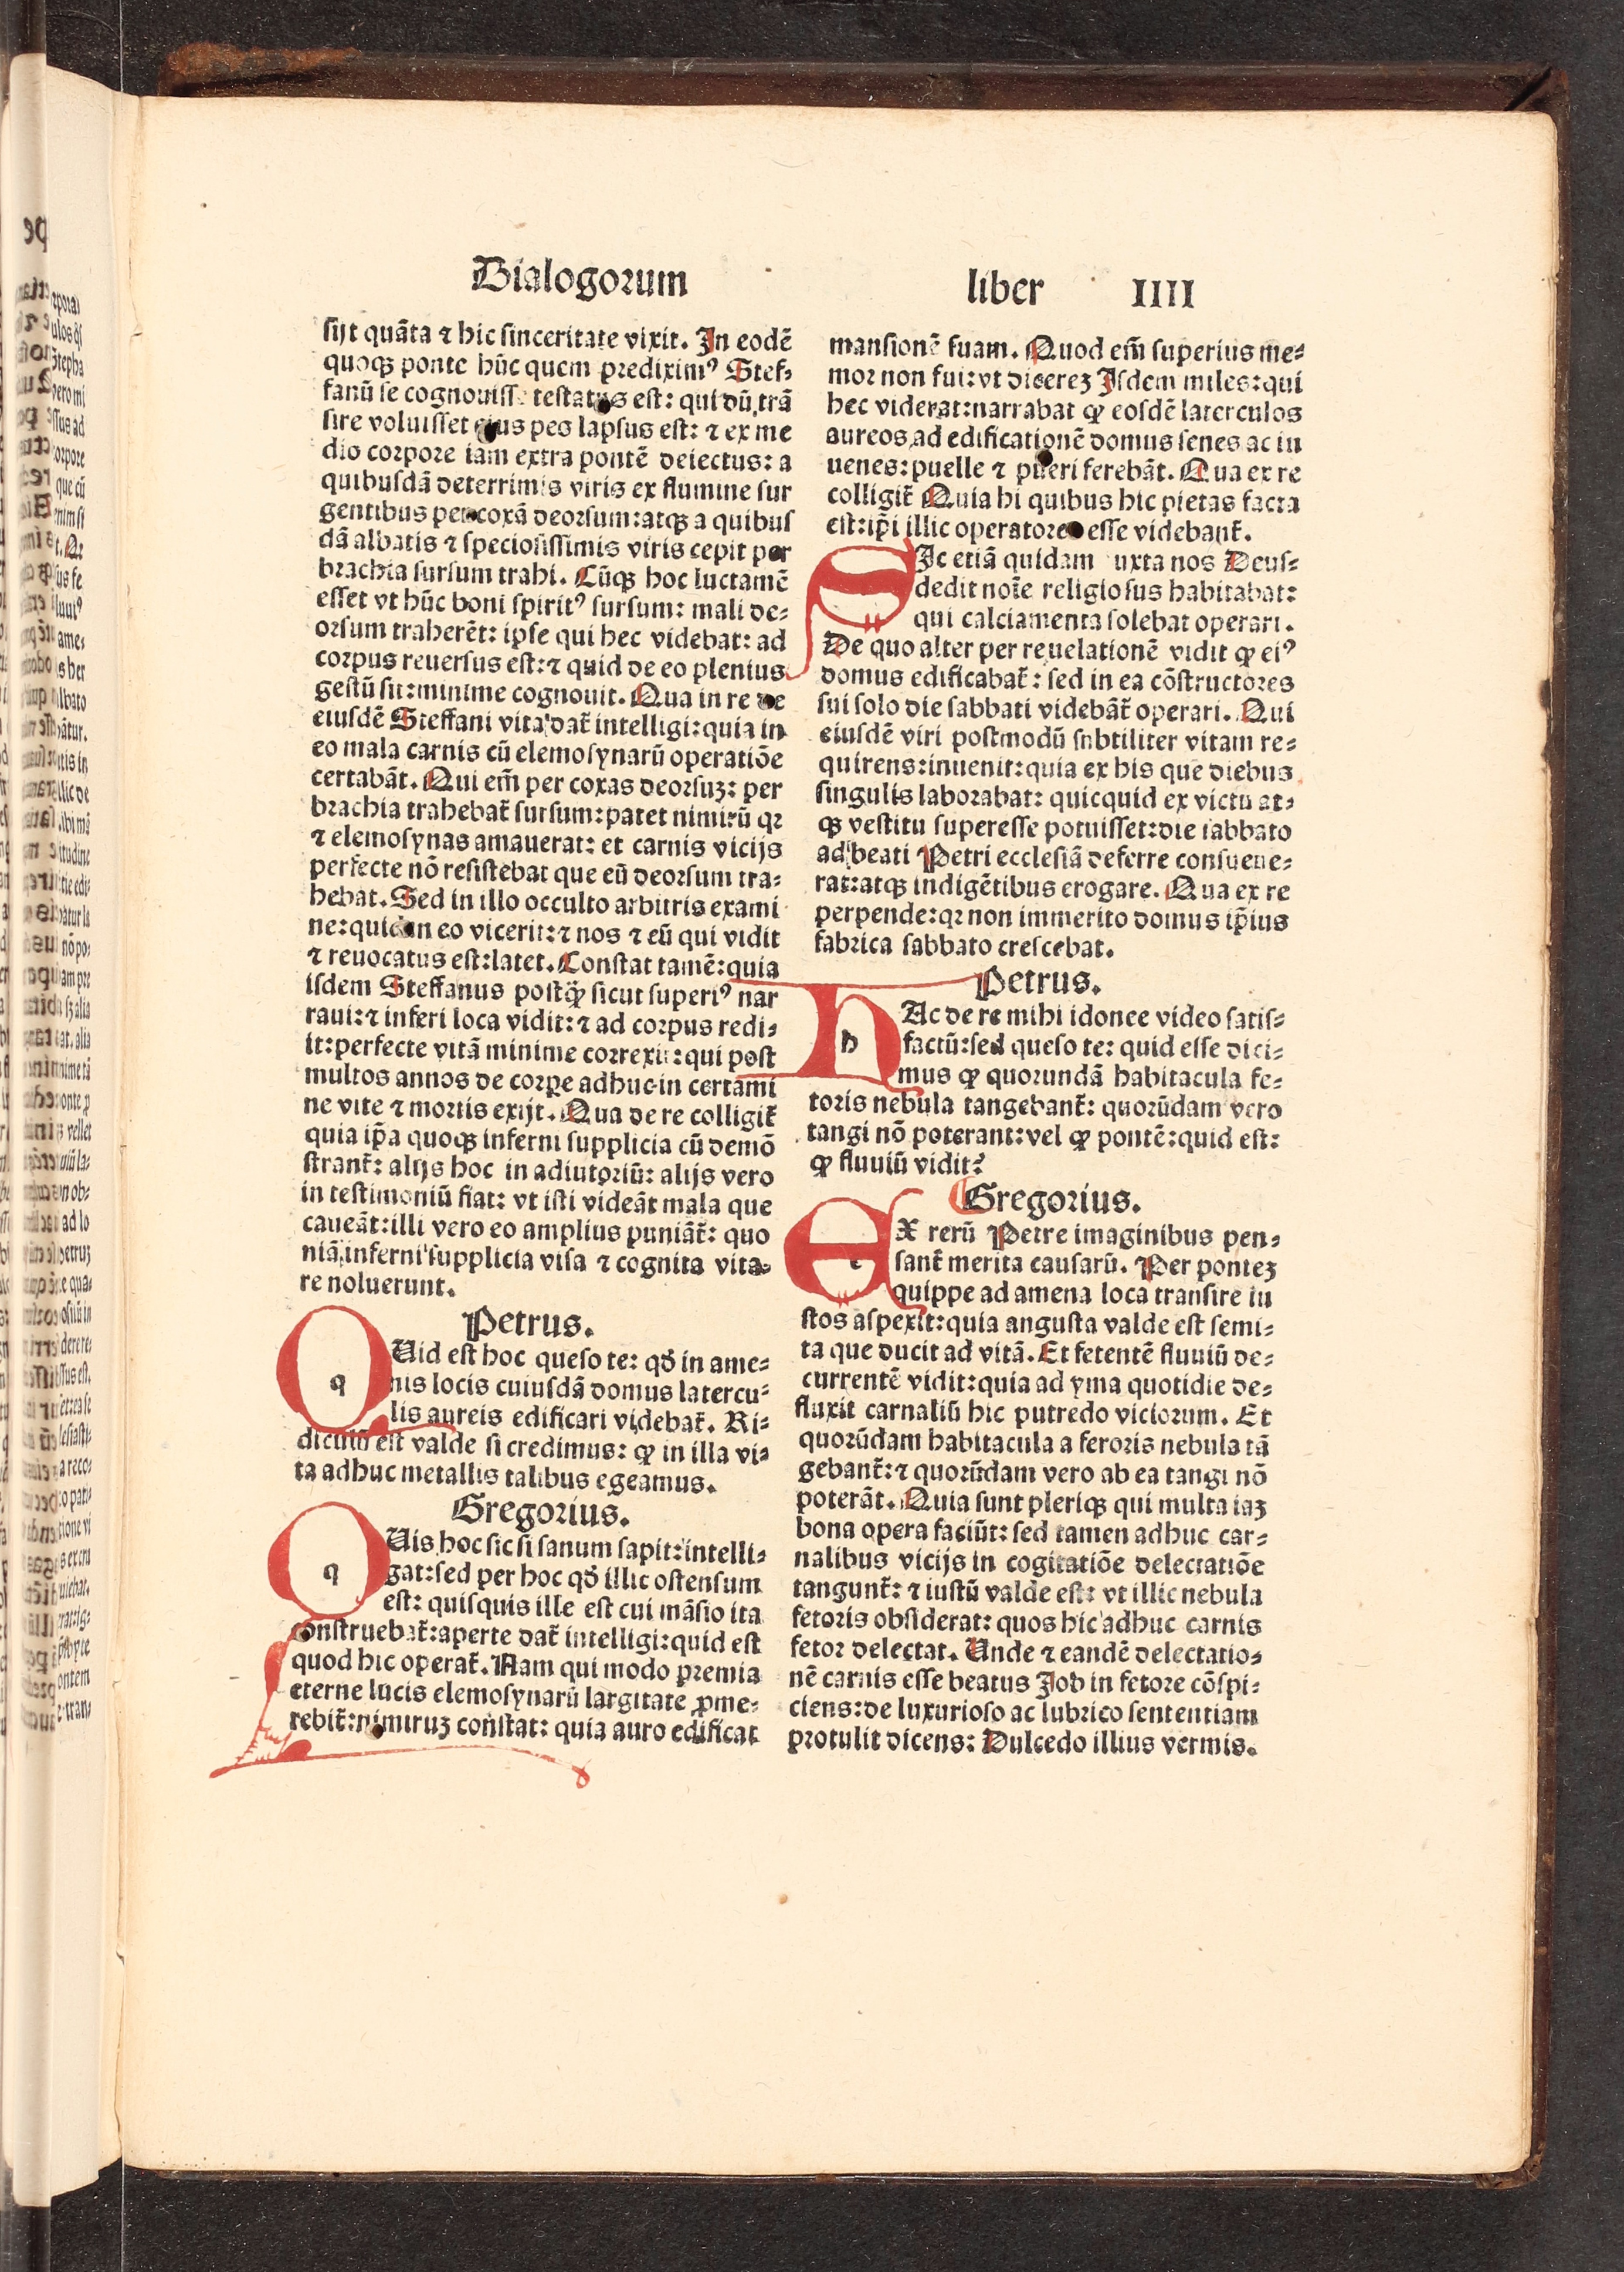 Dialogorum
liber IIII
sijt quãta ⁊ hic sinceritate vixit. In eodẽ
quoqꝫ ponte hũc quem prediximꝰ Stef⸗
fanũ se cognouisse testatus est: qui dũ trã
sire voluisset eius pes lapsus est: ⁊ ex me
dio corpore iam extra pontẽ deiectus: a
quibusdã deterrimis viris ex flumine sur
gentibus per coxã deorsum: atqꝫ a quibus
dã albatis ⁊ speciosissimis viris cepit per
brachia sursum trahi. Cũqꝫ hoc luctamẽ
esset vt hũc boni spiritꝰ sursum: mali de⸗
orsum traherẽt: ipse qui hec videbat: ad
corpus reuersus est: ⁊ quid de eo plenius
gestũ sit: minime cognouit. Qua in re de
eiusdẽ Steffani vita dat̃ intelligi: quia in
eo mala carnis cũ elemosynarũ operatiõe
certabãt. Qui em̃ per coxas deorsuꝫ: per
brachia trahebat̃ sursum: patet nimirũ qꝛ
⁊ elemosynas amauerat: et carnis vicijs
perfecte nõ resistebat que eũ deorsum tra⸗
hebat. Sed in illo occulto arbitris exami
ne: quid in eo vicerit: ⁊ nos ⁊ eũ qui vidit
⁊ reuocatus est: latet. Constat tamẽ: quia
isdem Steffanus postq̃ꝫ sicut superiꝰ nar
raui: ⁊ inferi loca vidit: ⁊ ad corpus redi⸗
it: perfecte vitã minime correxit: qui post
multos annos de corpe adhuc in certami
ne vite ⁊ mortis exijt. Qua de re colligit̃
quia ip̃a quoqꝫ inferni supplicia cũ demõ
strant̃: alijs hoc in adiutoriũ: alijs vero
in testimoniũ fiat: vt isti videãt mala que
caueãt: illi vero eo amplius puniãt̃: quo
niã inferni supplicia visa ⁊ cognita vita⸗
re noluerunt.
Petrus.
q Uid est hoc queso te: qđ in ame⸗
nis locis cuiusdã domus latercu⸗
lis aureis edificari videbat̃. Ri⸗
diculũ est valde si credimus: ꝙ in illa vi⸗
ta adhuc metallis talibus egeamus.
Gregorius.
q Uis hoc sic si sanum sapit: intelli⸗
gat: sed per hoc qđ illic ostensum
est: quisquis ille est cui mãsio ita
construebat̃: aperte dat̃ intelligi: quid est
quod hic operat̃. Nam qui modo premia
eterne lucis elemosynarũ largitate ꝓme⸗
rebit̃: nimiruꝫ constat: quia auro edificat
mansionẽ suam. Quod em̃ superius me⸗
mor non fui: vt dicereꝫ Isdem miles: qui
hec viderat: narrabat ꝙ eosdẽ laterculos
aureos ad edificationẽ domus senes ac iu
uenes: puelle ⁊ pueri ferebãt. Qua ex re
colligit̃ Quia hi quibus hic pietas facta
est: ip̃i illic operatores esse videbant̃.
S Ic etiã quidam iuxta nos Deus⸗
dedit noĩe religiosus habitabat:
qui calciamenta solebat operari.
De quo alter per reuelationẽ vidit ꝙ eiꝰ
domus edificabat̃: sed in ea cõstructores
sui solo die sabbati videbãt̃ operari. Qui
eiusdẽ viri postmodũ subtiliter vitam re⸗
quirens: inuenit: quia ex his que diebus
singulis laborabat: quicquid ex victu at⸗
qꝫ vestitu superesse potuisset: die sabbato
ad beati Petri ecclesiã deferre consueue⸗
rat: atqꝫ indigẽtibus erogare. Qua ex re
perpende: qꝛ non immerito domus ip̃ius
fabrica sabbato crescebat.
Petrus.
h Ac de re mihi idonee video satis⸗
factũ: sed queso te: quid esse dici⸗
mus ꝙ quorundã habitacula fe⸗
toris nebula tangebant̃: quorũdam vero
tangi nõ poterant: vel ꝙ pontẽ: quid est:
ꝙ fluuiũ vidit?
Gregorius.
e X rerũ Petre imaginibus pen⸗
sant̃ merita causarũ. Per ponteꝫ
quippe ad amena loca transire iu
stos aspexit: quia angusta valde est semi⸗
ta que ducit ad vitã. Et fetentẽ fluuiũ de⸗
currentẽ vidit: quia ad yma quotidie de⸗
fluxit carnaliũ hic putredo viciorum. Et
quorũdam habitacula a fetoris nebula tã
gebant̃: ⁊ quorũdam vero ab ea tangi nõ
poterãt. Quia sunt pleriqꝫ qui multa iaꝫ
bona opera faciũt: sed tamen adhuc car⸗
nalibus vicijs in cogitatiõe delectatiõe
tangunt̃: ⁊ iustũ valde est: vt illic nebula
fetoris obsiderat: quos hic adhuc carnis
fetor delectat. Unde ⁊ eandẽ delectatio⸗
nẽ carnis esse beatus Job in fetore cõspi⸗
ciens: de luxurioso ac lubrico sententiam
protulit dicens: Dulcedo illius vermis.